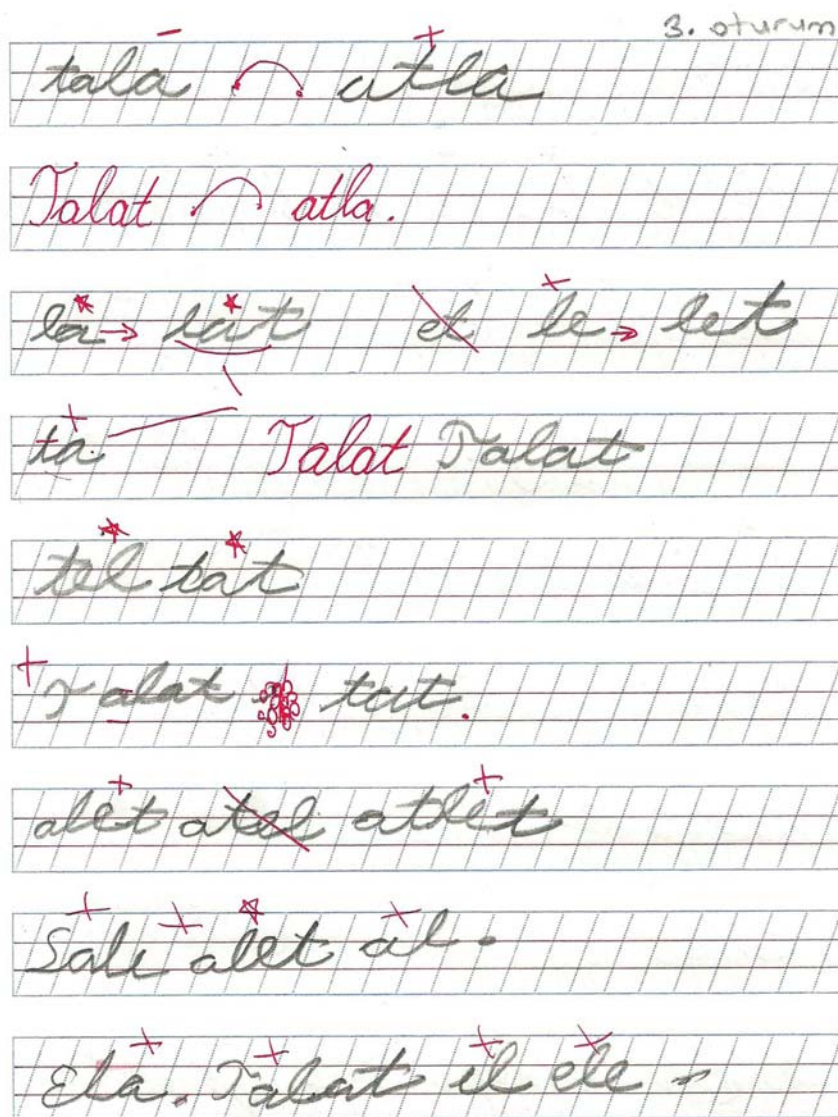 3. oturum
tala atla
Talat atla.
la → lat el le → let
ta Talat Talat
tel tat
Talat tat.
alet atel atlet
Sali alet al.
Ela. Talat el ele